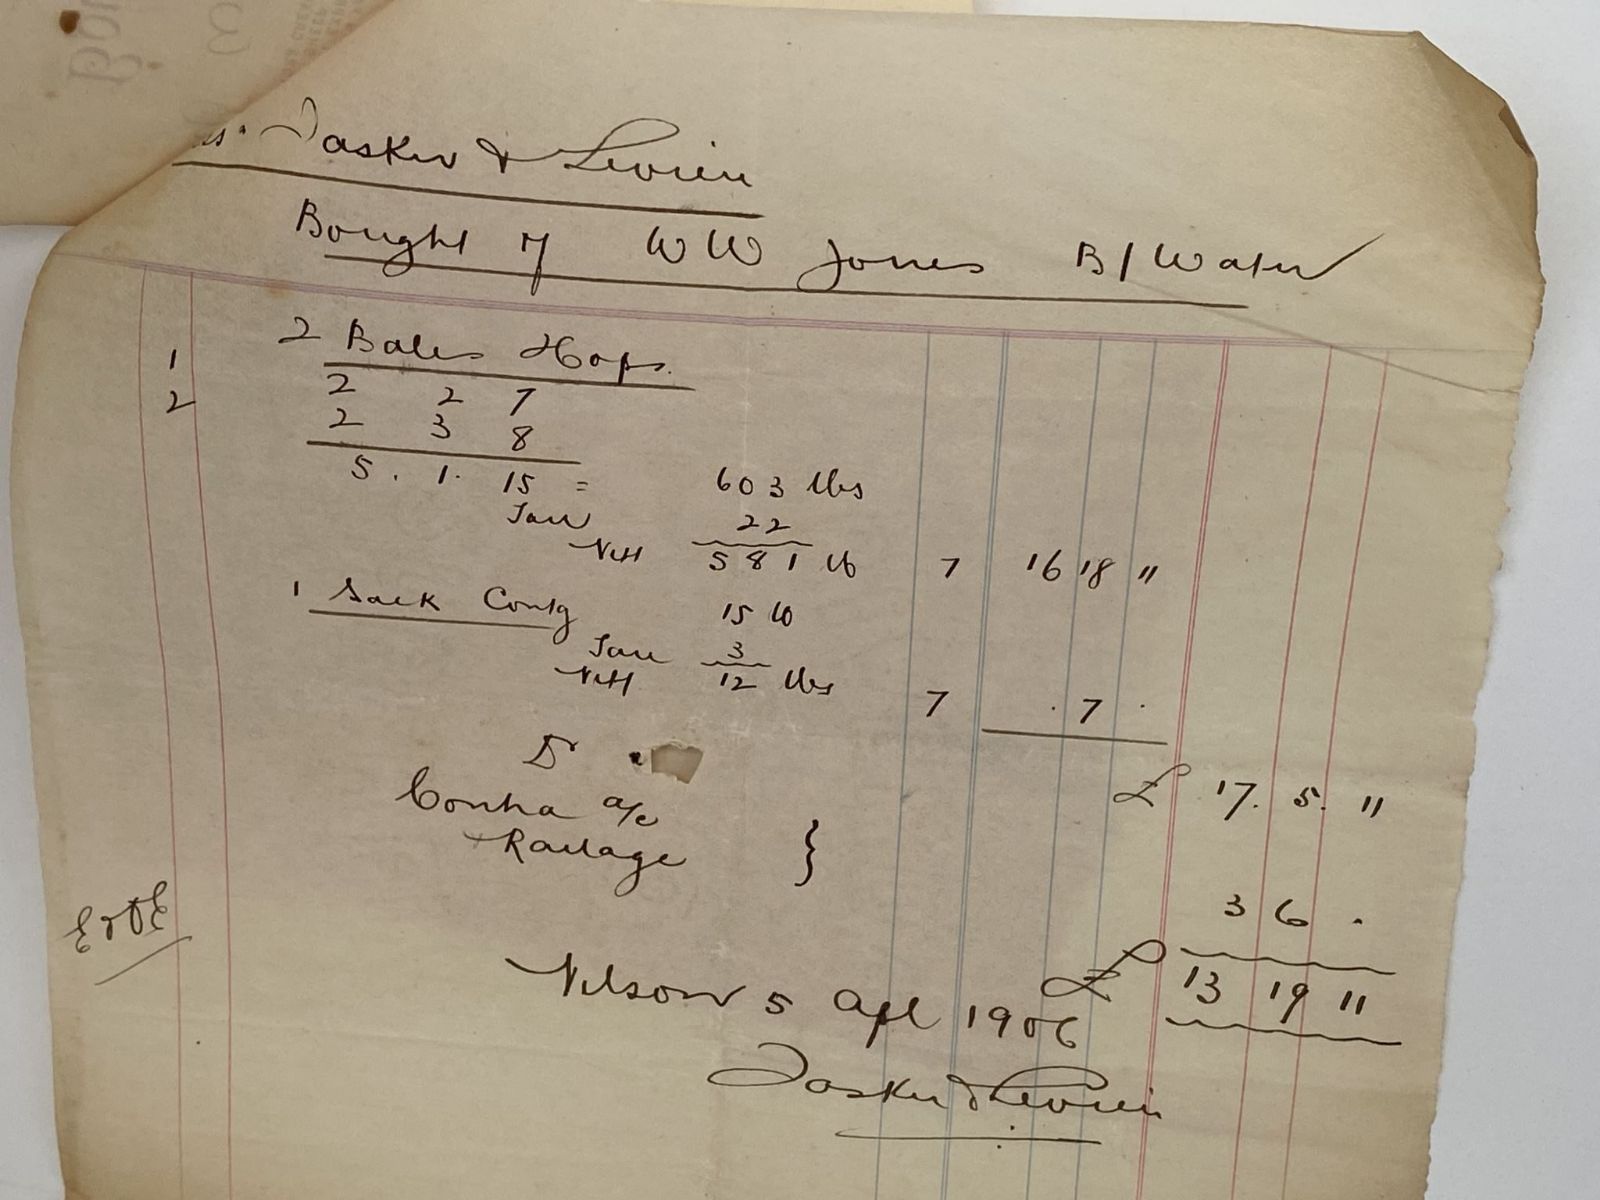 Tasker & Levien
Bought of W W Jones B/Water
2 Bales Hops.
1 2 2 7
2 2 3 8
5. 1. 15 = 603 lbs
Tare 22
Nett 581 lb 7 16 18 "
1 Sack Contg 15 lb
Tare 3
Nett 12 lbs 7 . 7 .
£ 17. 5. "
Contra a/c
Railage } 3 6 .
E & O E
£ 13 19 "
Nelson 5 Apl 1906
Tasker & Levien